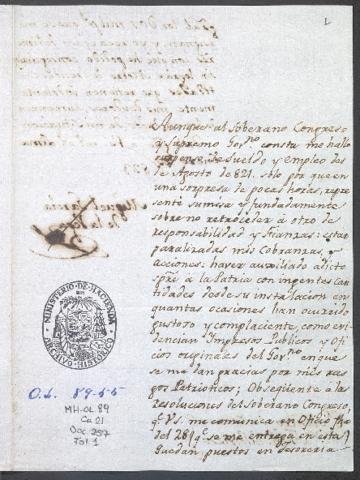 1
Aunque al Soberano Congreso
y Supremo Gov.no consta me hallo
suspenso de Sueldo y empleo des
de Agosto de 821. sólo por que en
una sorpresa de pocas horas, repre
senté sumisa y fundamente
sobre no retroceder á otro de
responsabilidad y Fianzas: estar
paralizadas mis Cobranzas, y
acciones: haver auxiliado adicto
spre á la Patria con ingentes can
tidades desde su instalacion en
quantas ocasiones han ocurrido
gustoso y complaciente, como evi
dencian Impresos Publicos y Ofi
cios originales del Gov.no en que
se me dan gracias por mis ras
gos Patrioticos; Obsequente á las
resoluciones del Soberano Congreso,
q.e V.S. me comunica en Oficio fho
del 28 q.e se me entregó en esta
quedan puestos en Tesoreria
MINISTERIO DE HACIENDA
ARCHIVO HISTORICO
O.L. 89-55
MH-OL 89
Ca 21
Doc 297
Fol 1